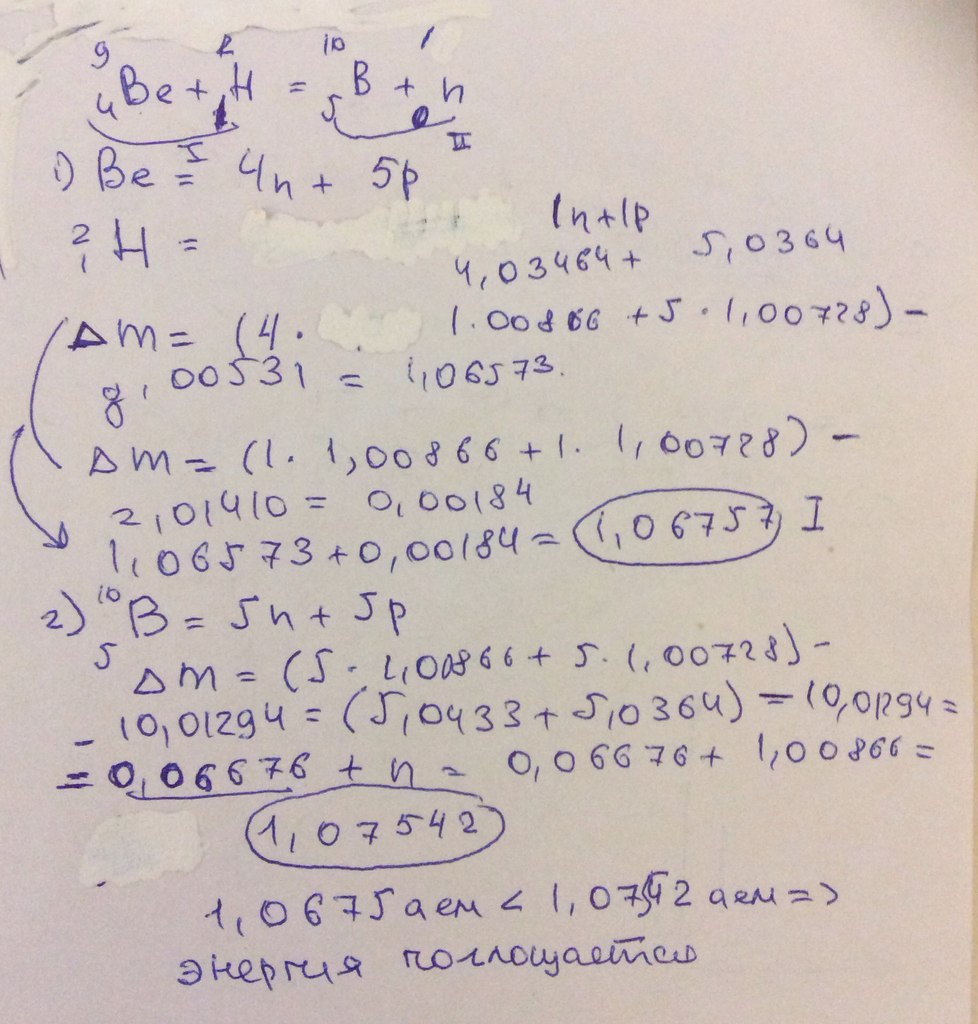 ⁹₄Be + ²₁H = ¹⁰₅B + ¹₀n
I II
1) Be = 4n + 5p
²₁H = 1n+1p
4,03464 + 5,0364
Δm = (4 · 1.00866 + 5 · 1,00728) -
8,00531 = 1,06573.
Δm = (1 · 1,00866 + 1 · 1,00728) -
2,01410 = 0,00184
1,06573 + 0,00184 = 1,06757 I
2) ¹⁰₅B = 5n + 5p
Δm = (5 · 1,00866 + 5 · 1,00728) -
- 10,01294 = (5,0433 + 5,0364) - 10,01294 =
= 0,06676 + n = 0,06676 + 1,00866 =
1,07542
1,0675 аем < 1,0752 аем =>
энергия поглощается